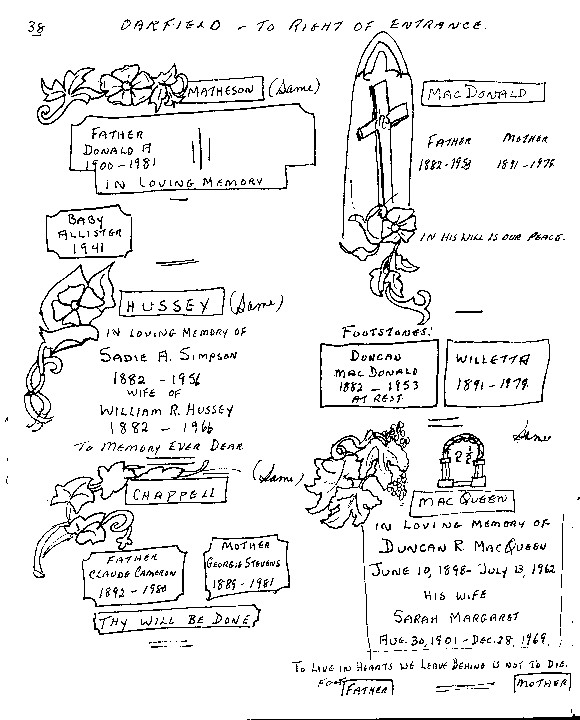 38
DARFIELD - TO RIGHT OF ENTRANCE.
MATHESON (Same)
FATHER
DONALD A
1900 - 1981
IN LOVING MEMORY
BABY
ALLISTER
1941
HUSSEY (Same)
IN LOVING MEMORY OF
SADIE A. SIMPSON
1882 - 1956
WIFE OF
WILLIAM R. HUSSEY
1882 - 1966
TO MEMORY EVER DEAR
CHAPPELL (Same)
FATHER
CLAUDE CAMERON
1892 - 1980
MOTHER
GEORGIE STEVENS
1889 - 1981
THY WILL BE DONE
MACDONALD
FATHER MOTHER
1882-1953 1891-1979
IN HIS WILL IS OUR PEACE.
FOOTSTONES:
DUNCAN
MACDONALD
1882 - 1953
AT REST
WILLETTA
1891 - 1979
Same
2 1/2
MACQUEEN
IN LOVING MEMORY OF
DUNCAN R. MACQUEEN
JUNE 10, 1898 - JULY 13, 1962
HIS WIFE
SARAH MARGARET
AUG. 30, 1901 - DEC. 28, 1969
TO LIVE IN HEARTS WE LEAVE BEHIND IS NOT TO DIE.
FOOT FATHER MOTHER